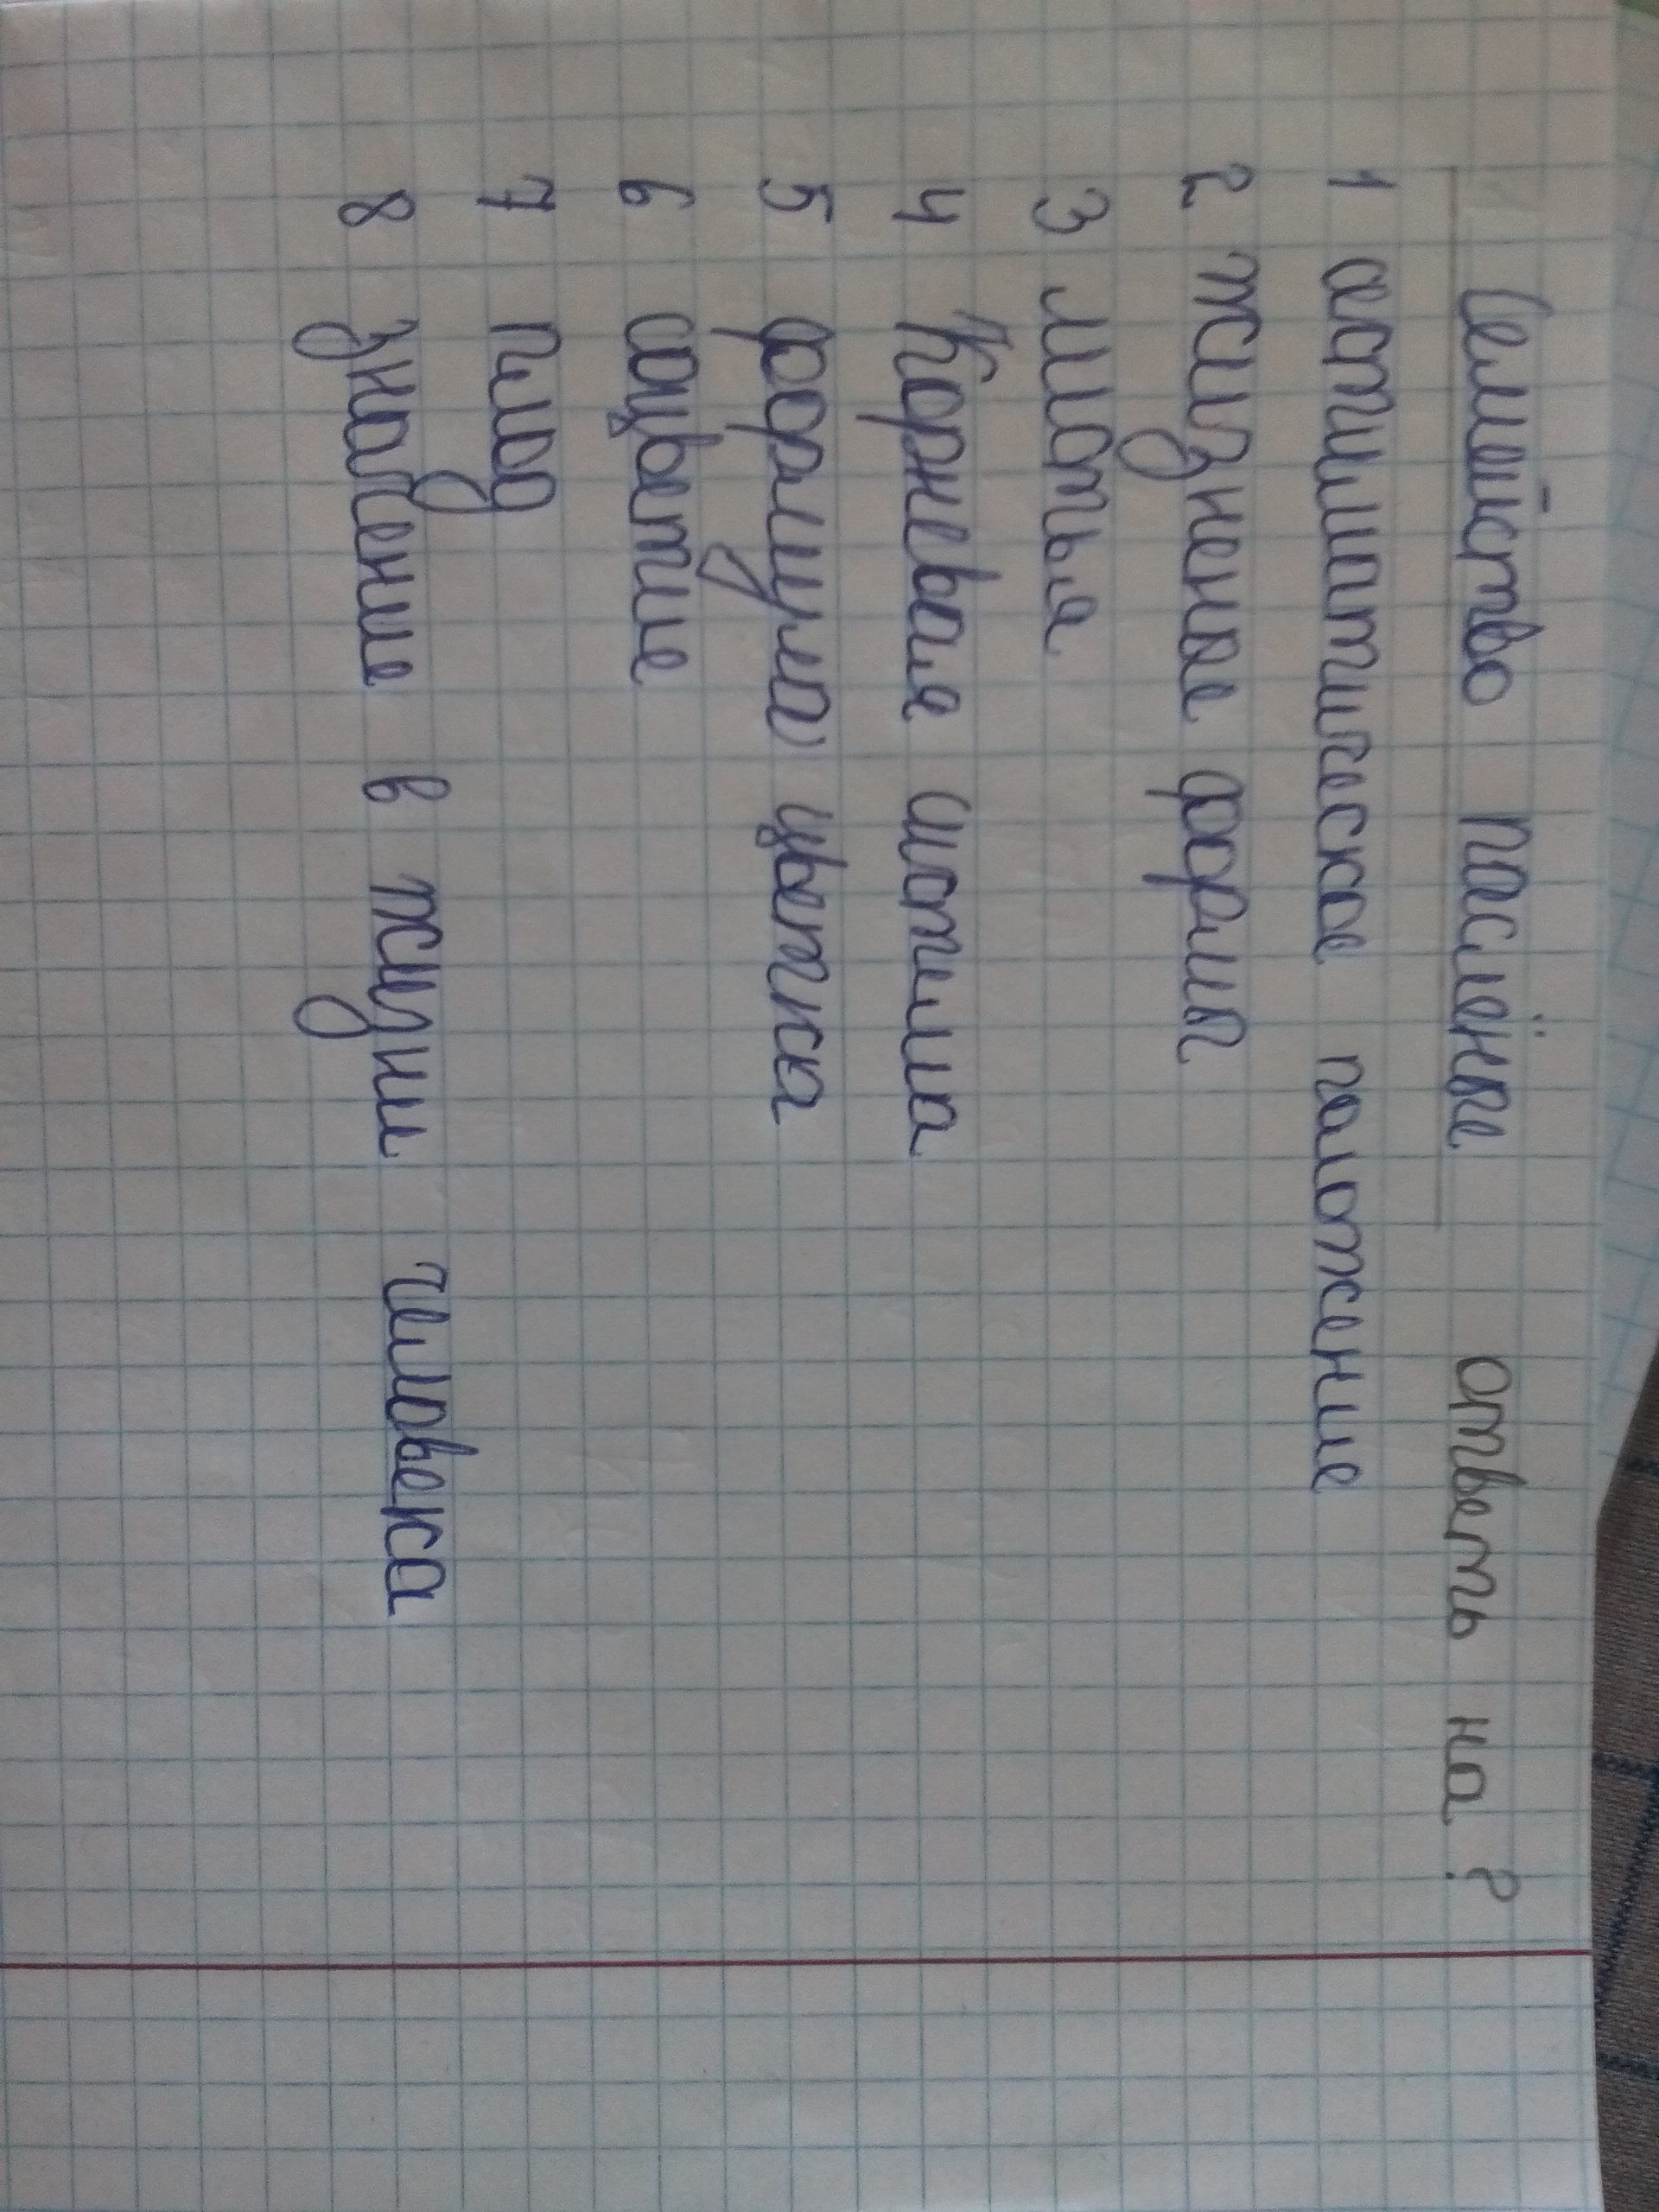 Семейство паслёные ответь на ?
1 систиматическое положение
2 жизненые формы
3 листья
4 Корневая система
5 формула цветка
6 соцветие
7 плод
8 значение в жизни человека